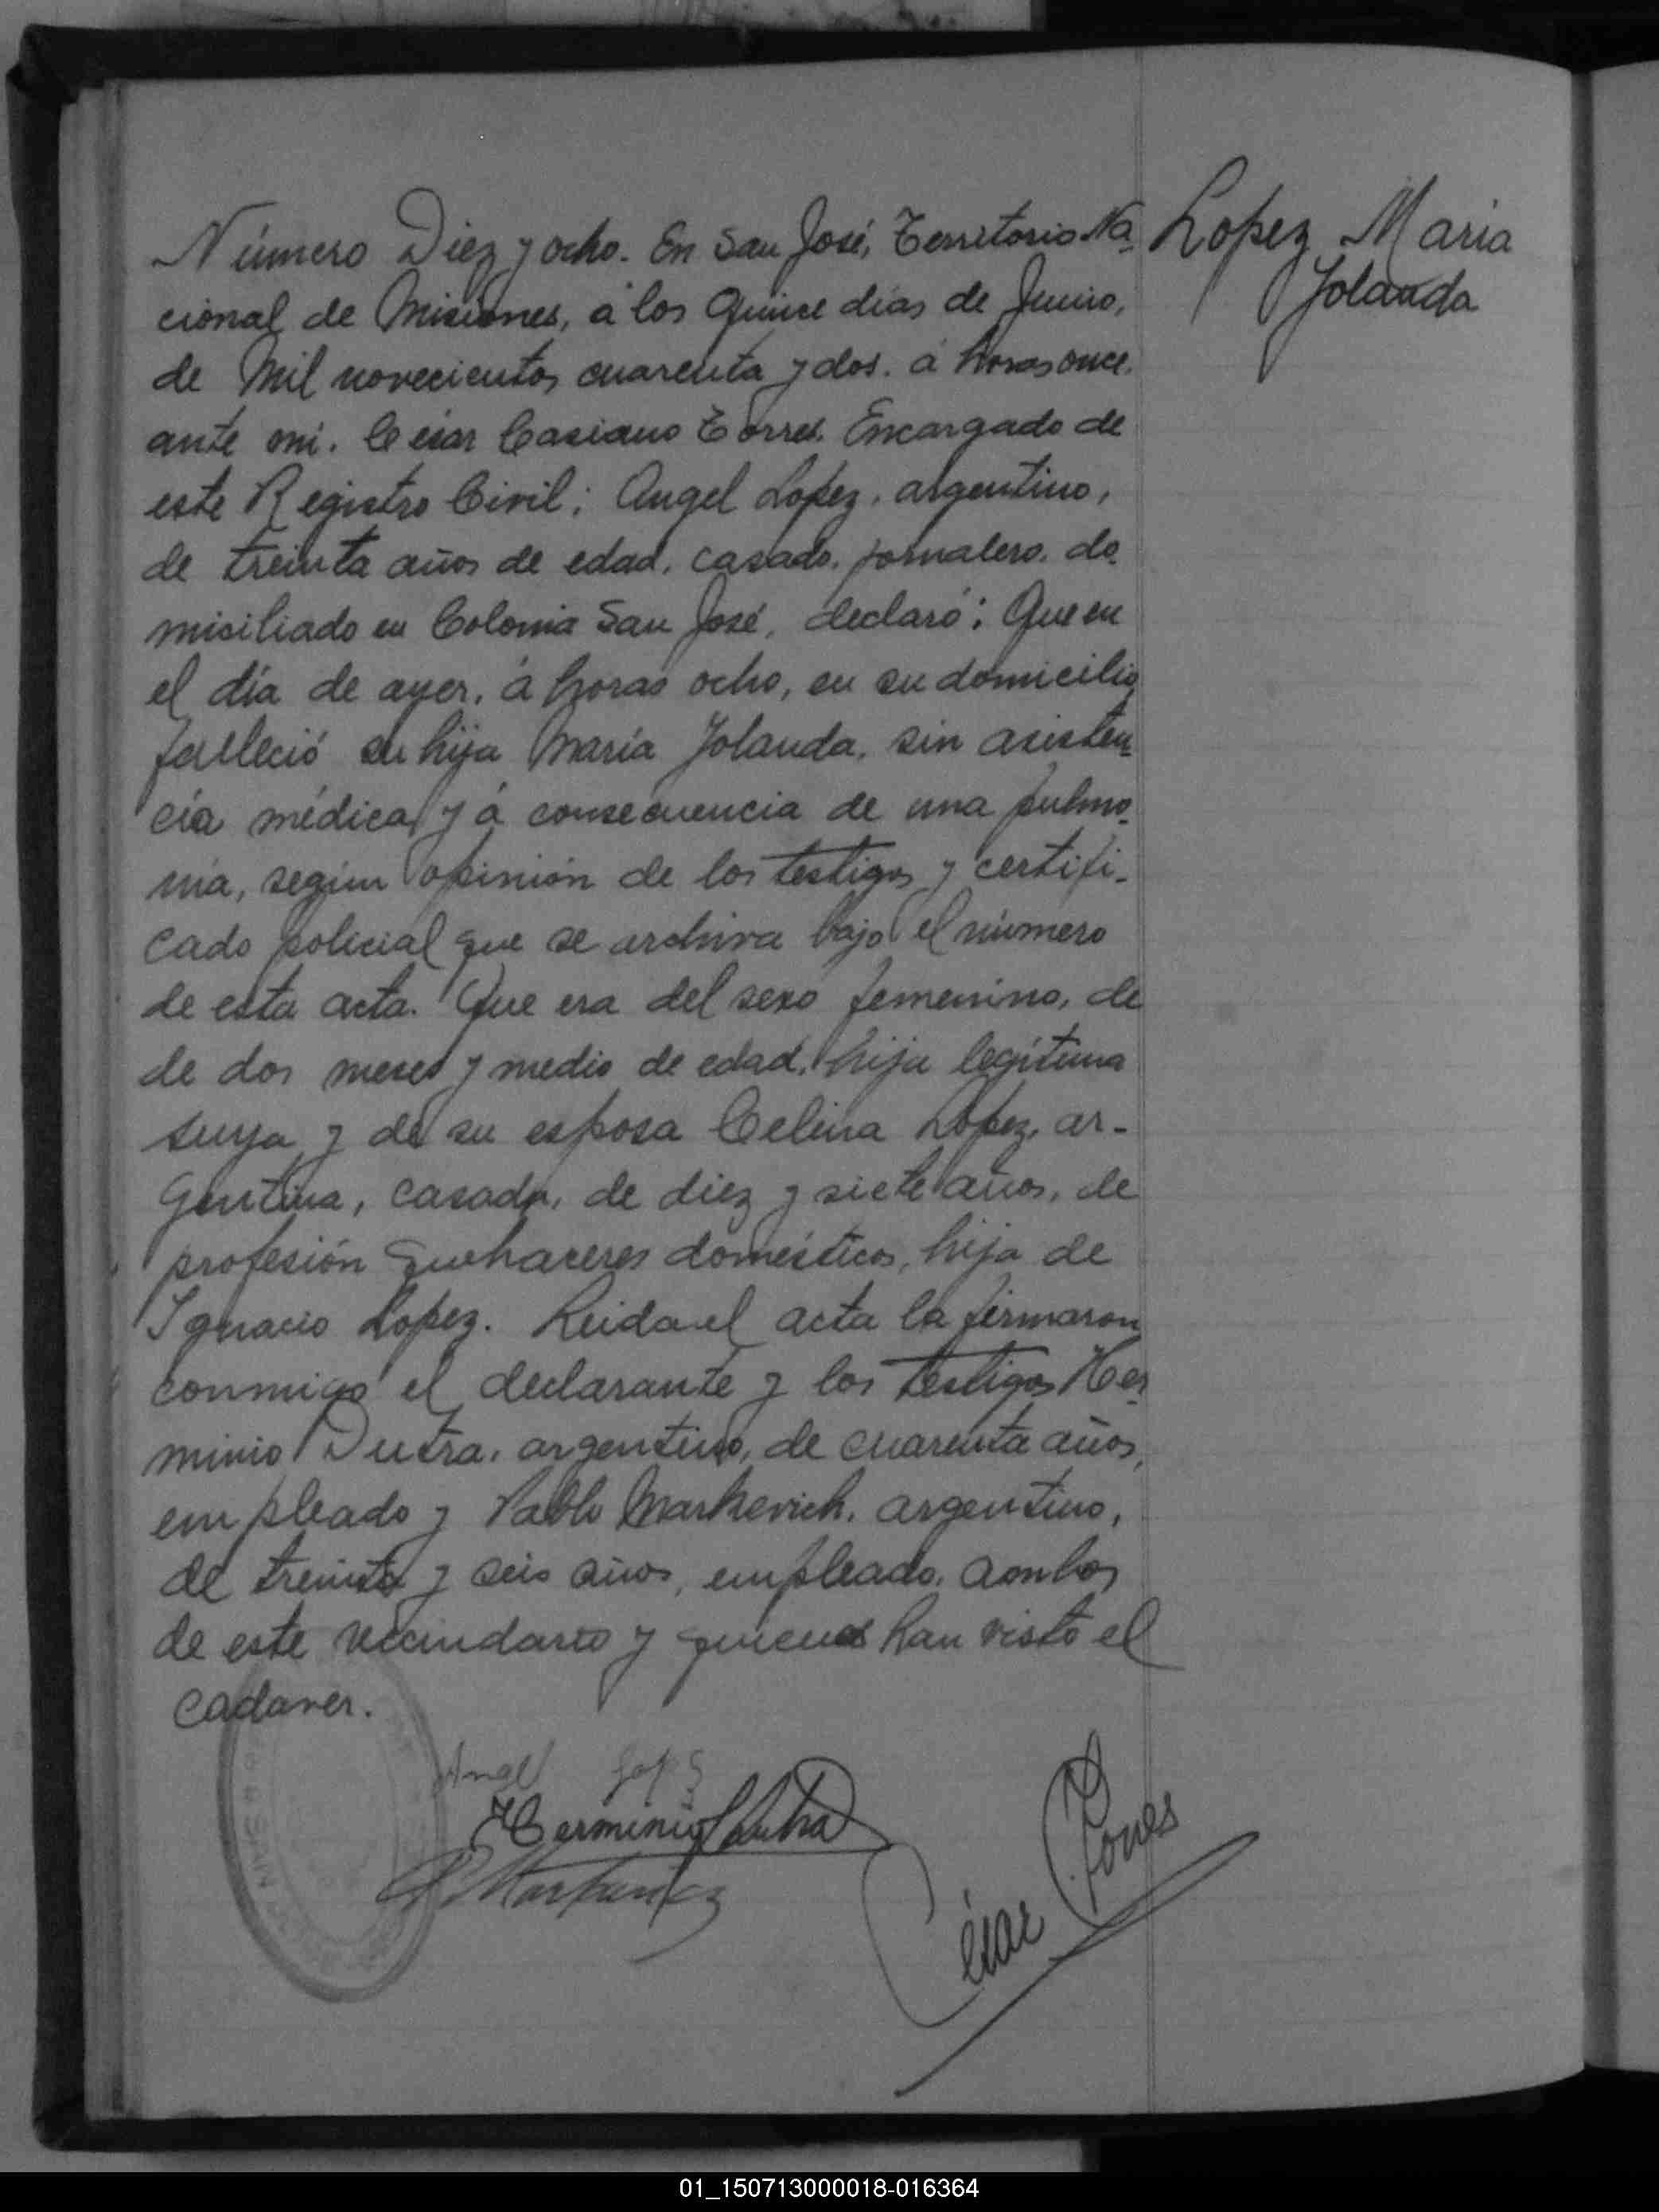 Número Diez y ocho. En San José, Territorio Na-
cional de Misiones, á los Quince días de Junio,
de Mil novecientos cuarenta y dos. á horas once.
ante mi. César Casiano Torres. Encargado de
este Registro Civil; Angel Lopez, argentino,
de treinta años de edad, casado, jornalero, do-
misiliado en Colonia San José, declaró: Que en
el día de ayer, á horas ocho, en su domicilio
falleció su hija María Jolanda, sin asisten-
cia médica y á consecuencia de una pulmo-
nía, según opinión de los testigos y certifi-
cado policial que se archiva bajo el número
de esta acta. Que era del sexo femenino, de
de dos meses y medio de edad, hija legítima
suya y de su esposa Celina Lopez, ar-
gentina, casada, de diez y siete años, de
profesión quehaceres domésticos, hija de
Ignacio Lopez. Leida el acta la firmaron
conmigo el declarante y los testigos Her-
minio Dutra, argentino, de cuarenta años,
empleado y Pablo Markevich, argentino,
de treinta y seis años, empleado, ambos
de este vecindario y quienes han visto el
cadaver.
Lopez Maria
Jolanda
Angel Lopez
Herminio Dutra
César Torres
01_150713000018-016364